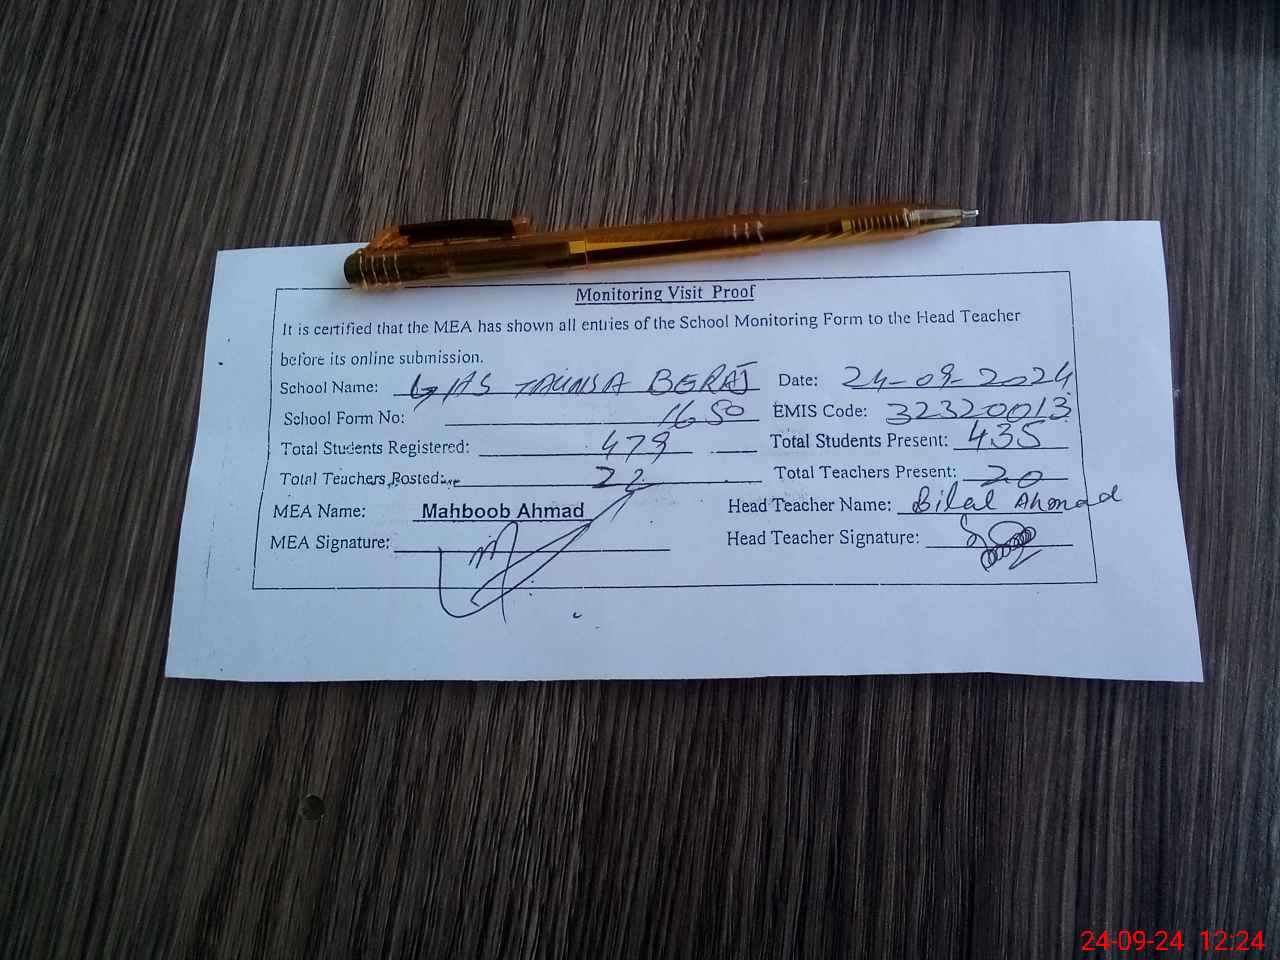 Monitoring Visit Proof
It is certified that the MEA has shown all entries of the School Monitoring Form to the Head Teacher
before its online submission.
School Name: GHS TAUNSA BERAJ Date: 24-09-2024
School Form No: 1650 EMIS Code: 32320013
Total Students Registered: 479 Total Students Present: 435
Total Teachers Posted: 22 Total Teachers Present: 20
MEA Name: Mahboob Ahmad Head Teacher Name: Bilal Ahmad
MEA Signature: Head Teacher Signature:
24-09-24 12:24